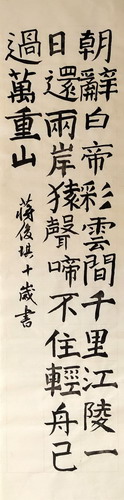 朝辭白帝彩雲間千里江陵一
日還兩岸猿聲啼不住輕舟已
過萬重山
蔣俊琪十歲書